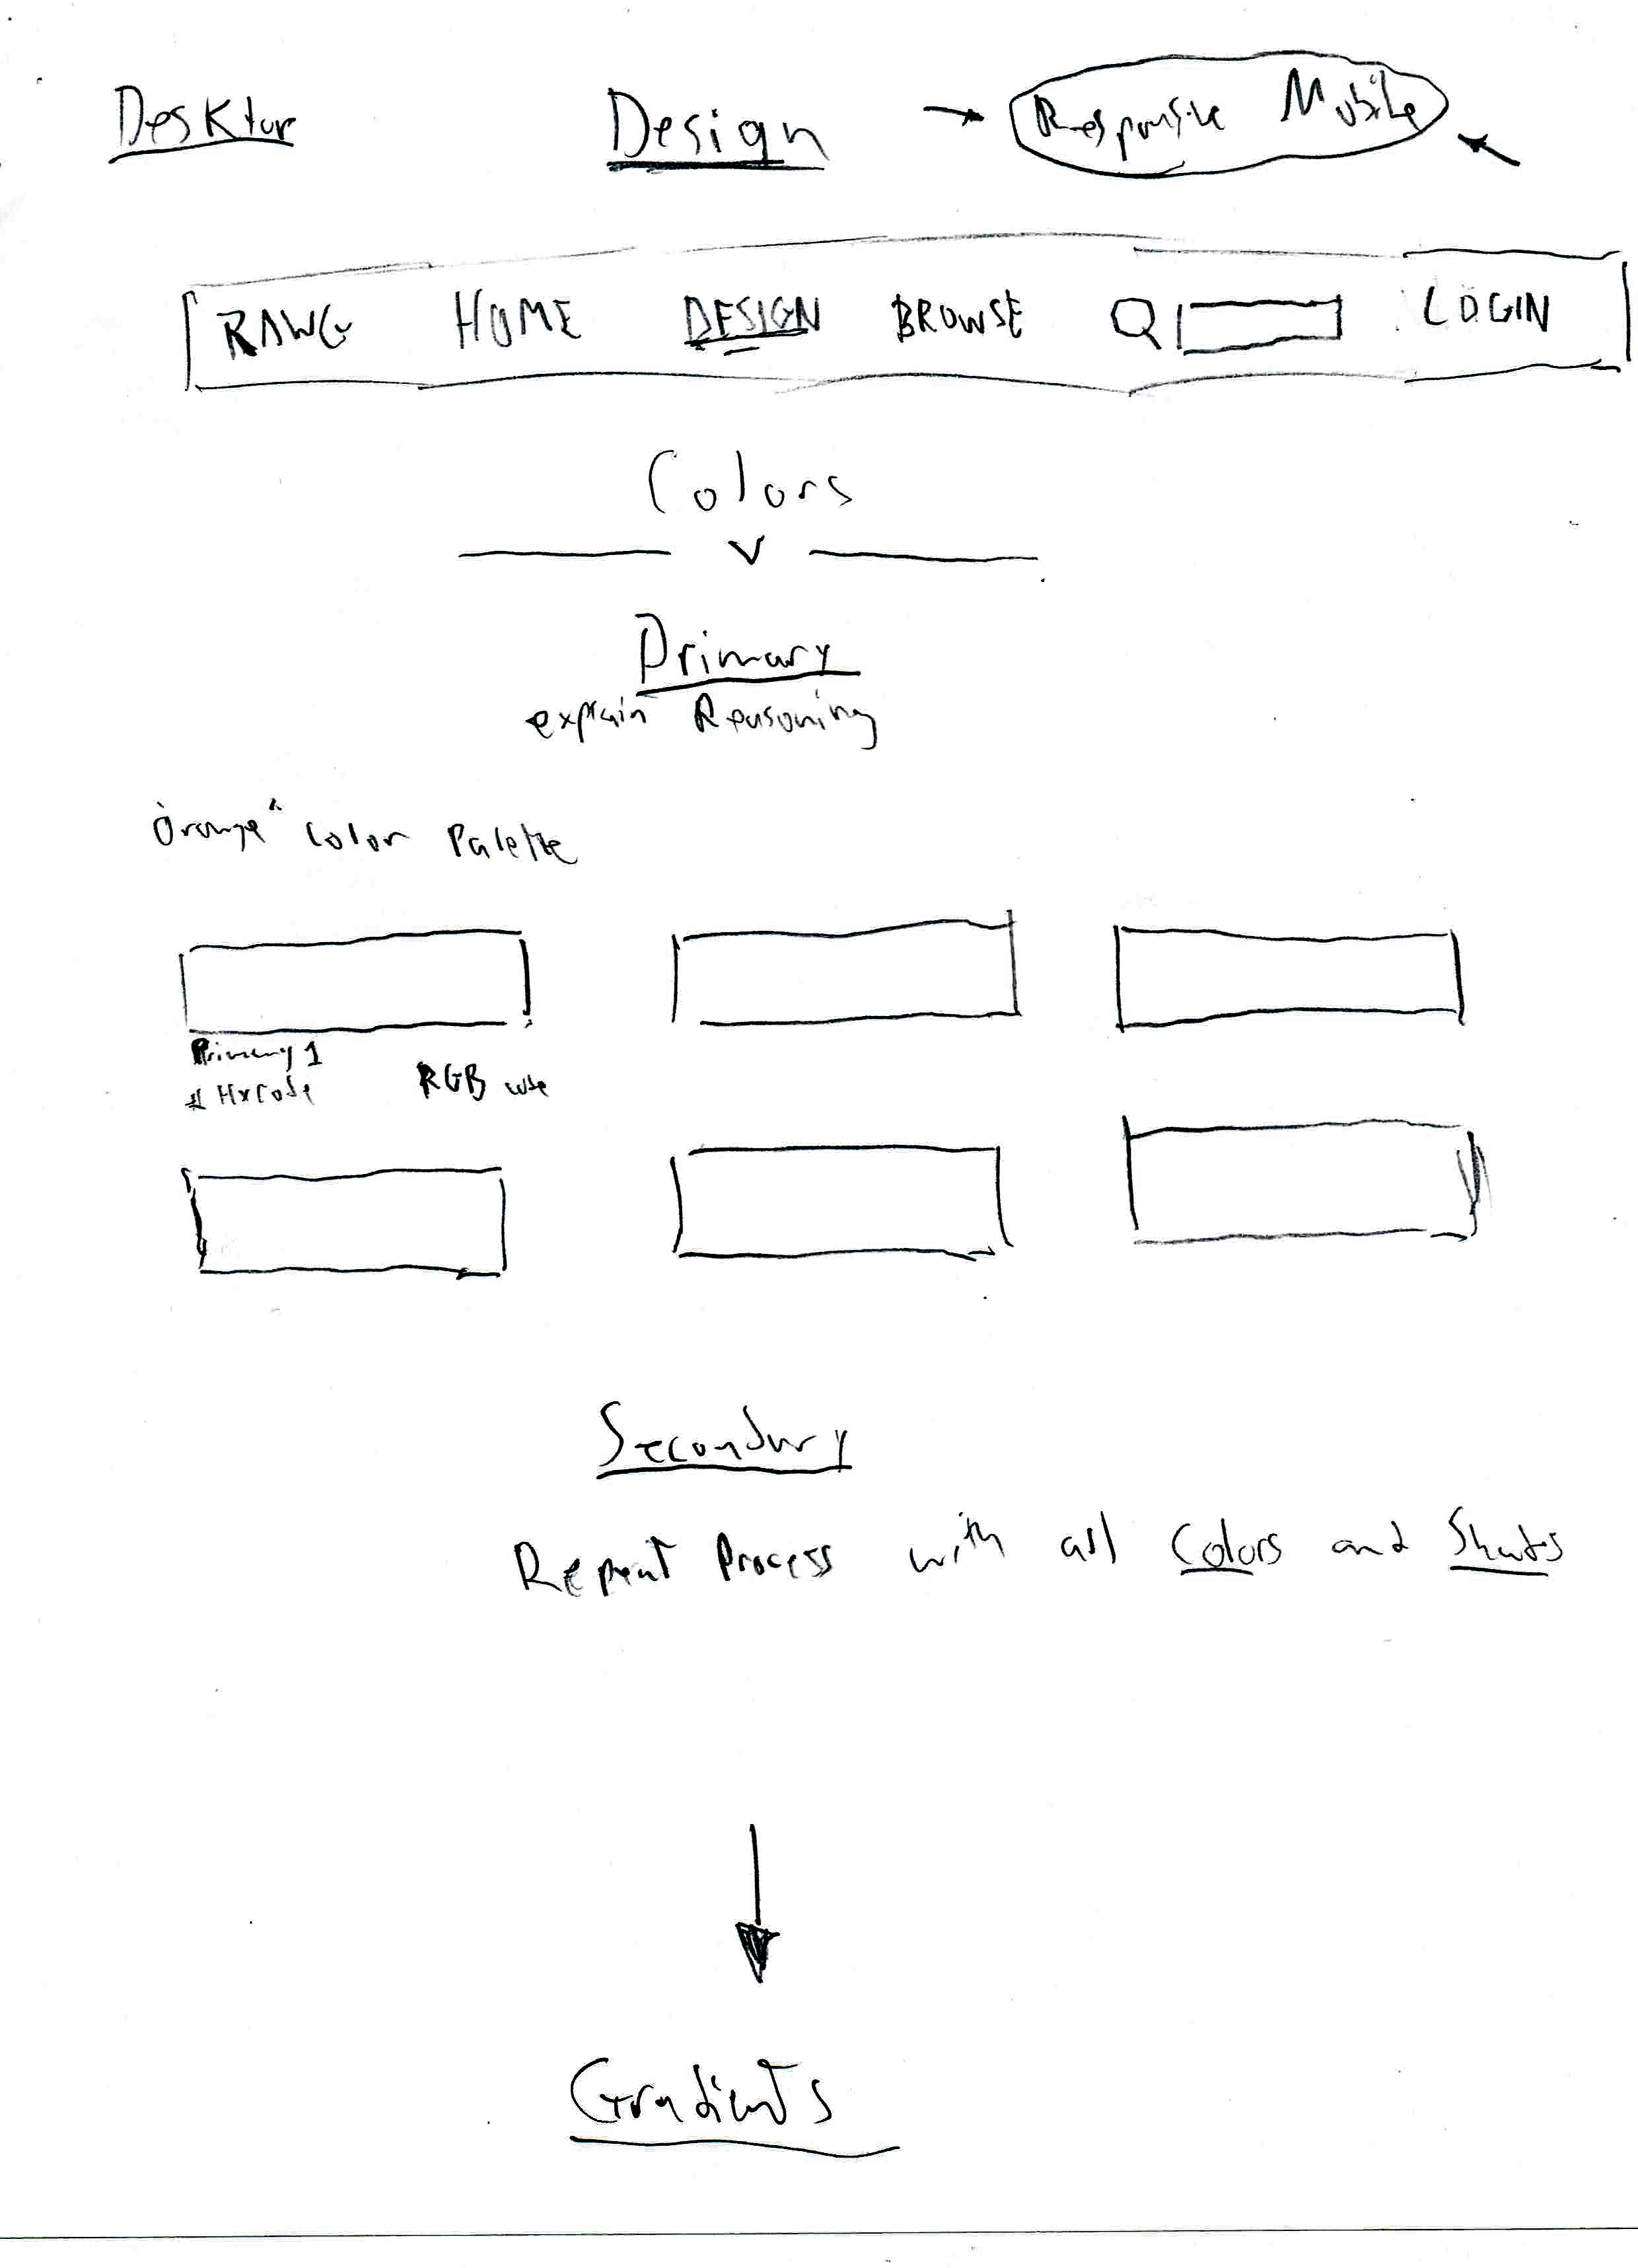 Desktop Design → Responsive Mobile
RAWG HOME DESIGN BROWSE LOGIN
Colors
Primary
explain Reasoning
"Orange" Color Palette
Primary 1
# Hxcode RGB code
Secondary
Repeat Process with all Colors and Shades
Gradients